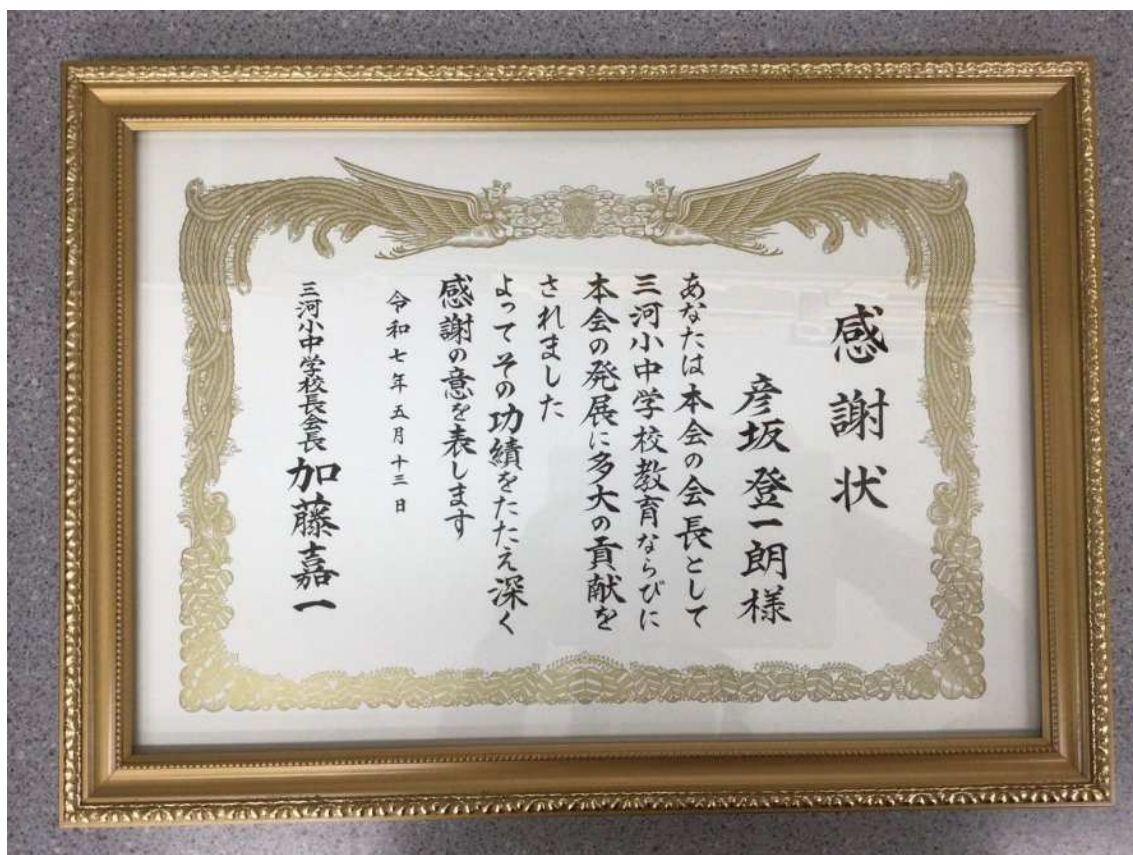 感謝状
彦坂登一朗様
あなたは本会の会長として
三河小中学校教育ならびに
本会の発展に多大の貢献を
されました
よってその功績をたたえ深く
感謝の意を表します
令和七年五月十三日
三河小中学校長会長 加藤嘉一